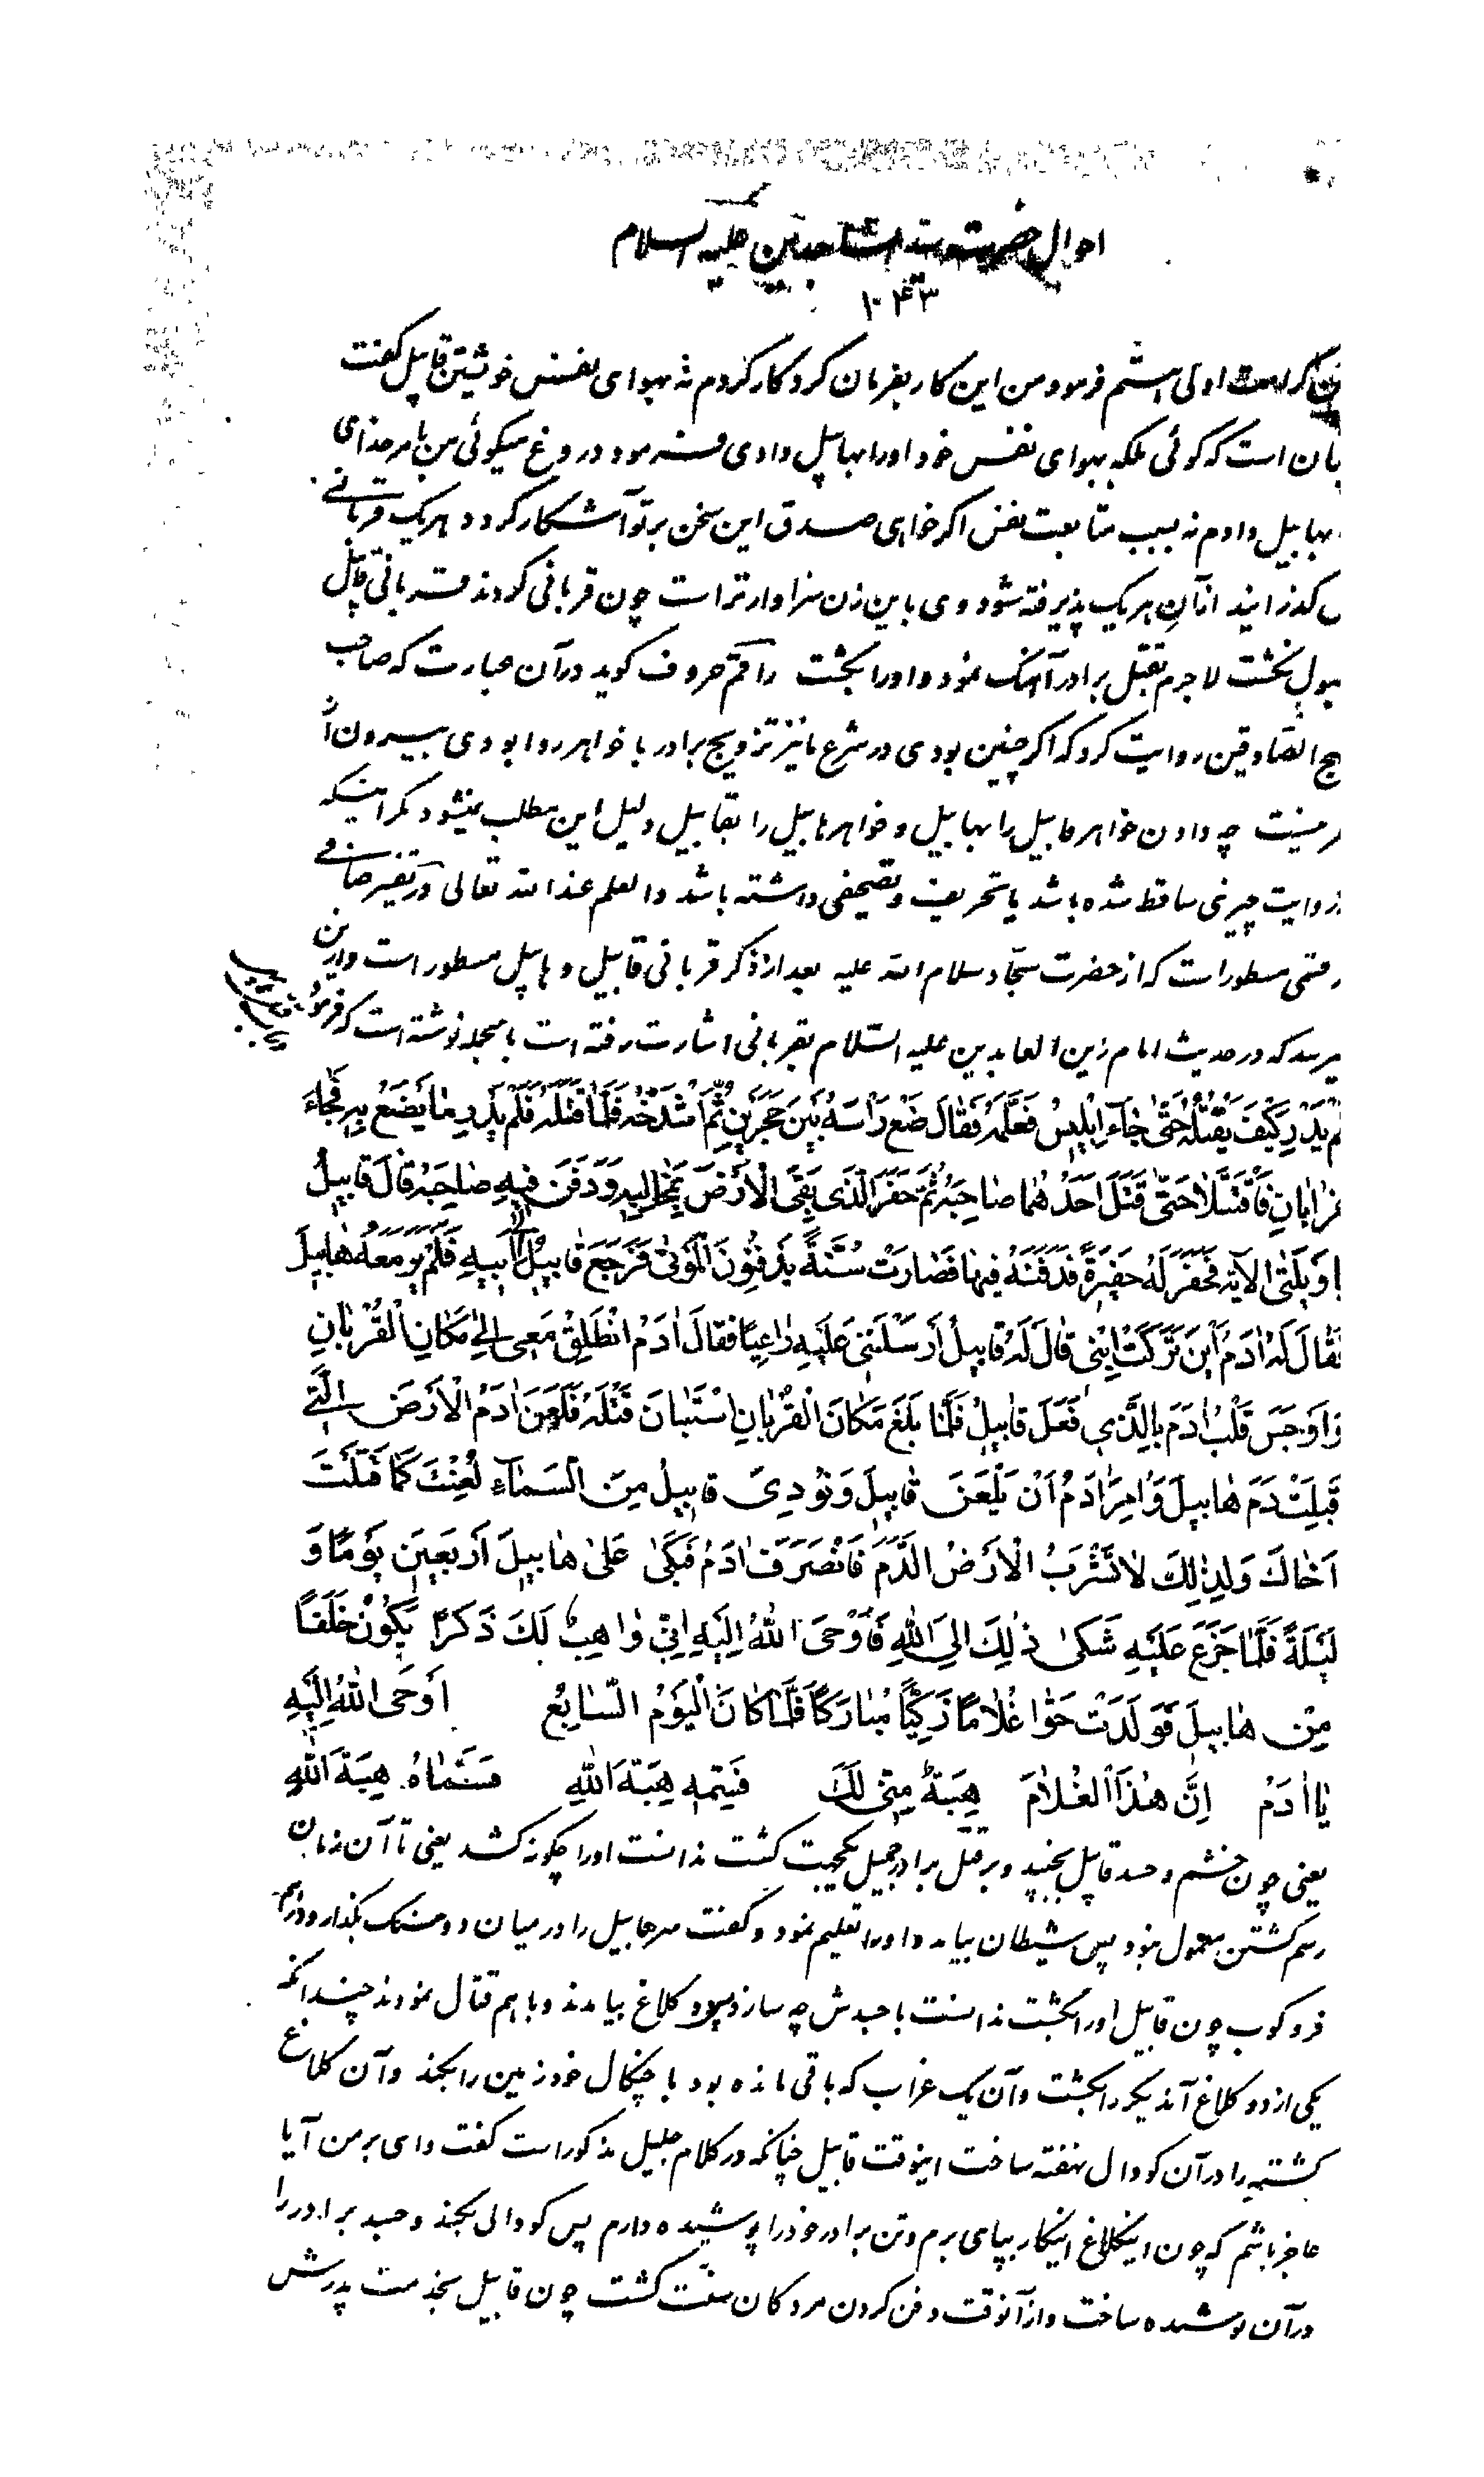 احوال حضرت سید الساجدین علیه السلام
۱۰۴۳
اولی هستم فرمود من این کار بفرمان کردکار کردم نه بهوای نفس خویشتن قابیل گفت
است که گوئی بلکه بهوای نفس خود او را بهابیل دادی فرمود دروغ میگوئی من بامر خدای
بهابیل دادم نه بسبب متابعت نفس اگر خواهی صدق این سخن بر تو آشکار گردد هر یک قربانی
گذرانید از آن هر یک پذیرفته شود وی باین زن سزاوارتر است چون قربانی کردند قربانی قابیل
لاجرم بقتل برادر آهنگ نمود و او را بکشت راقم حروف گوید در آن عبارت که صاحب
الصادقین روایت کرد که اگر چنین بودی در شرع ما نیز تزویج برادر با خواهر روا بودی بیرون از
نیست چه دادن خواهر قابیل را بهابیل و خواهر هابیل را بقابیل دلیل این مطلب نمیشود مگر اینکه
روایت چیزی ساقط شده باشد یا تحریف و تصحیفی داشته باشد والعلم عند الله تعالی در تفسیر صافی
مسطور است که از حضرت سجاد سلام الله علیه بعد از ذکر قربانی قابیل و هابیل مسطور است و این
میرسد که در حدیث امام زین العابدین علیه السّلام بقربانی اشارت رفته است بالجمله نوشته است که فرمود
لَمْ يَدْرِ كَيْفَ يَقْتُلُهُ حَتّىٰ جٰآءَ اِبْلِيسُ فَعَلَّمَهُ فَقٰالَ ضَعْ رَأْسَهُ بَيْنَ حَجَرَيْنِ ثُمَّ اشْدَخْهُ فَلَمّٰا قَتَلَهُ فَلَمْ يَدْرِ مٰا يَصْنَعُ بِهِ فَجٰاءَ
غُرٰابٰانِ فَاقْتَتَلٰا حَتّىٰ قَتَلَ اَحَدُهُمٰا صٰاحِبَهُ ثُمَّ حَفَرَ الَّذِى بَقِىَ الْاَرْضَ بِمَخٰالِبِهِ وَدَفَنَ فِيهِ صٰاحِبَهُ قٰالَ قٰابِيلُ
يٰا وَيْلَتىٰ الآیه فَحَفَرَ لَهُ حَفِيرَةً فَدَفَنَهُ فِيهٰا فَصٰارَتْ سُنَّةً يَدْفِنُونَ الْمَوْتىٰ فَرَجَعَ قٰابِيلُ اِلىٰ اَبِيهِ فَلَمْ يَرَ مَعَهُ هٰابِيلَ
فَقٰالَ لَهُ اٰدَمُ اَيْنَ تَرَكْتَ ابْنِى قٰالَ لَهُ قٰابِيلُ اَرْسَلْتَنِى عَلَيْهِ رٰاعِيًا فَقٰالَ اٰدَمُ انْطَلِقْ مَعِى اِلىٰ مَكٰانِ الْقُرْبٰانِ
وَاَوْجَسَ قَلْبُ اٰدَمَ بِالَّذِى فَعَلَ قٰابِيلُ فَلَمّٰا بَلَغَ مَكٰانَ الْقُرْبٰانِ اسْتَبٰانَ قَتْلَهُ فَلَعَنَ اٰدَمُ الْاَرْضَ الَّتِى
قَبِلَتْ دَمَ هٰابِيلَ وَاُمِرَ اٰدَمُ اَنْ يَلْعَنَ قٰابِيلَ وَنُودِىَ قٰابِيلُ مِنَ السَّمٰآءِ لُعِنْتَ كَمٰا قَتَلْتَ
اَخٰاكَ وَلِذٰلِكَ لٰا تَشْرَبُ الْاَرْضُ الدَّمَ فَانْصَرَفَ اٰدَمُ فَبَكىٰ عَلىٰ هٰابِيلَ اَرْبَعِينَ يَوْمًا وَ
لَيْلَةً فَلَمّٰا جَزِعَ عَلَيْهِ شَكىٰ ذٰلِكَ اِلَى اللّٰهِ فَاَوْحَى اللّٰهُ اِلَيْهِ اِنِّى وٰاهِبٌ لَكَ ذَكَرًا يَكُونُ خَلَفًا
مِنْ هٰابِيلَ فَوَلَدَتْ حَوّٰا غُلٰامًا زَكِيًّا مُبٰارَكًا فَلَمّٰا كٰانَ الْيَوْمُ السّٰابِعُ اَوْحَى اللّٰهُ اِلَيْهِ
يٰا اٰدَمُ اِنَّ هٰذَا الْغُلٰامَ هِبَةٌ مِنِّى لَكَ فَسَمِّهِ هِبَةَ اللّٰهِ فَسَمّٰاهُ هِبَةَ اللّٰهِ
یعنی چون خشم و حسد قابیل بجنبید و بر قتل برادر جمیل یکجهت گشت ندانست او را چگونه کشد یعنی تا آن زمان
رسم کشتن معمول نبود پس شیطان بیامد و او را تعلیم نمود و گفت سر هابیل را در میان دو سنگ بگذار و درهم
فرو کوب چون قابیل او را بکشت ندانست با جسدش چه سازد پس دو کلاغ بیامدند و با هم قتال نمودند چندانکه
یکی از دو کلاغ آندیگر را بکشت و آن یک غراب که باقی مانده بود با چنگال خود زمین را بکند و آن کلاغ
کشته را در آن کودال نهفته ساخت اینوقت قابیل چنانکه در کلام جلیل مذکور است گفت وای بر من آیا
عاجز باشم که چون اینکلاغ اینکار بپای برم و تن برادر خود را پوشیده دارم پس کودالی بکند و جسد برادر را
در آن پوشیده ساخت و از آنوقت دفن کردن مردکان سنّت گشت چون قابیل بخدمت پدرش